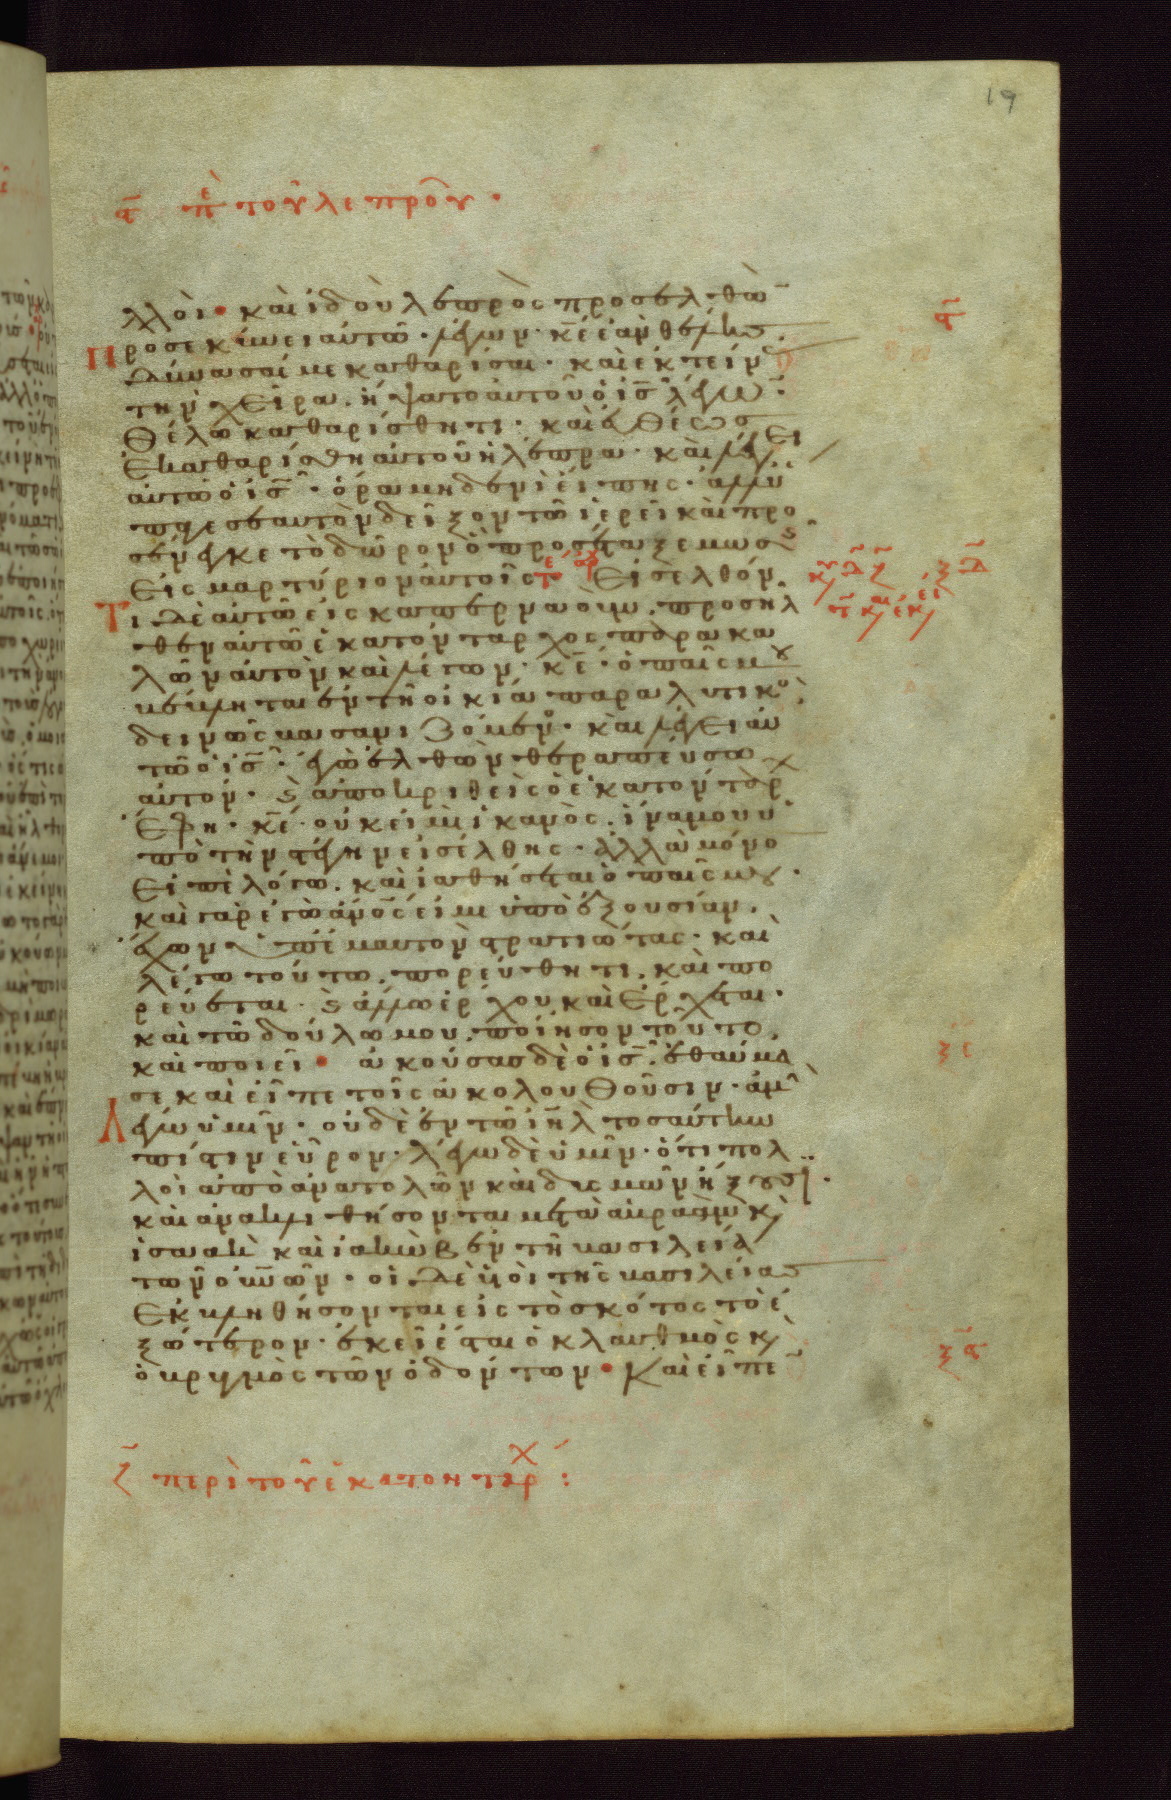 19
ϛ̄ πε τοῦ λεπροῦ.
λλοὶ. καὶ ἰδοὺ λεπρὸς προσελθὼ
προσεκύνει αὐτῶ. λέγων. κ̅ε̅ ἐὰν θέλης
δύνασαί με καθαρίσαι. καὶ ἐκτείν
τὴν χεῖρα. ἥψατο αὐτοῦ ὁ ι̅ς̅ λέγω.
θέλω καθαρίσθητι. καὶ εὐθέως
ἐκαθαρίσθη αὐτοῦ ἡ λέπρα. καὶ λέγει
αὐτῶ ὁ ι̅ς̅. ὅρα μηδενὶ εἴπης. ἀλλ ὕ
παγε σεαυτὸν δεῖξον τῶ ἱερεῖ καὶ προ
σένεγκε τὸ δῶρον ὃ προσέταξε μωσῆς
εἰς μαρτύριον αὐτοῖς τε αρ Εἰσελθόν
τι δὲ αὐτῶ εἰς καπερναοὺμ. προσῆλ
θεν αὐτῶ ἑκατόνταρχος παρακα
λῶν αὐτὸν καὶ λέγων. κ̅ε̅. ὁ παῖς μου
βέβληται ἐν τῆ οἰκία παραλυτικὸ
δεινῶς βασανιζόμενο. καὶ λέγει αὐ
τῶ ὁ ι̅ς̅. ἐγὼ ἐλθὼν θεραπεύσω
αὐτόν. ϗ ἀποκριθεὶς ὁ ἑκατόνταρχ
ἔφη. κ̅ε̅. οὐκ εἰμὶ ἱκανὸς. ἵνα μου ὑ
πὸ τὴν στέγην εἰσέλθης. ἀλλὰ μόνο
εἰπὲ λόγω. καὶ ἰαθήσεται ὁ παῖς μου.
καὶ γὰρ ἐγὼ ἄνο̅ς̅ εἰμι ὑπὸ ἐξουσίαν.
ἔχων ὑπ ἐμαυτὸν στρατιώτας. καὶ
λέγω τούτω. πορεύθητι. καὶ πο
ρεύεται. ϗ ἄλλω ἔρχου καὶ ἔρχεται.
καὶ τῶ δούλω μου. ποίησον τοῦτο.
καὶ ποιεῖ. ἀκούσας δὲ ὁ ι̅ς̅. ἐθαύμα
σε καὶ εἶπε τοῖς ἀκολουθοῦσιν. ἀμὴ
λέγω ὑμῖν. οὐδὲ ἐν τῶ ι̅η̅λ̅ τοσαύτην
πίστιν εὗρον. λέγω δὲ ὑμῖν. ὅτι πολ
λοὶ ἀπὸ ἀνατολῶν καὶ δυσμῶν ἥξουσι.
καὶ ἀνακλιθήσονται μετὰ ἀβραὰμ ϗ
ἰσαὰκ καὶ ἰακὼβ ἐν τῆ βασιλεία
τῶν ο̅υ̅ν̅ῶν. οἱ δὲ υἱοὶ τῆς βασιλείας
ἐκβληθήσονται εἰς τὸ σκότος τὸ ἐ
ξώτερον. ἐκεῖ ἔσται ὁ κλαυθμὸς ϗ
ὁ βρυγμὸς τῶν ὀδόντων. καὶ εἶπε
ζ̄ περὶ τοῦ ἑκατοντάρχ:
ξε
ξϛ